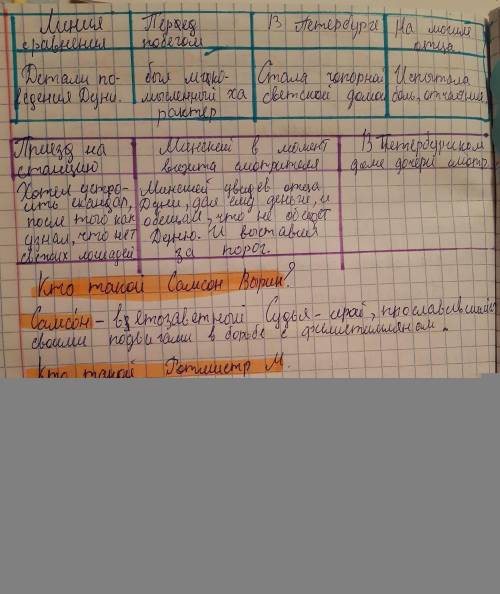 Линия Перед В Петербурге На могиле
сравнения побегом отца
Детали по- был легко- Стала чопорной Испытала
ведения Дуни. мысленный ха светской дамой боль, отчаяние.
рактер
Приезд на Минский в момент В Петербургском
станцию визита смотрителя доме дочери смотр.
Хотел устро- Минский увидев отца
ить скандал, Дуни, дал ему деньги, и
после того как обещал, что не обидет
узнал, что нет Дуню. И выставил
свежих лошадей за порог.
Кто такой Самсон Вырин?
Самсо́н - ветозаветный Судья - герой, прославившийся
своими подвигами в борьбе с филистимлянам.
Кто такой Ротмистр М.